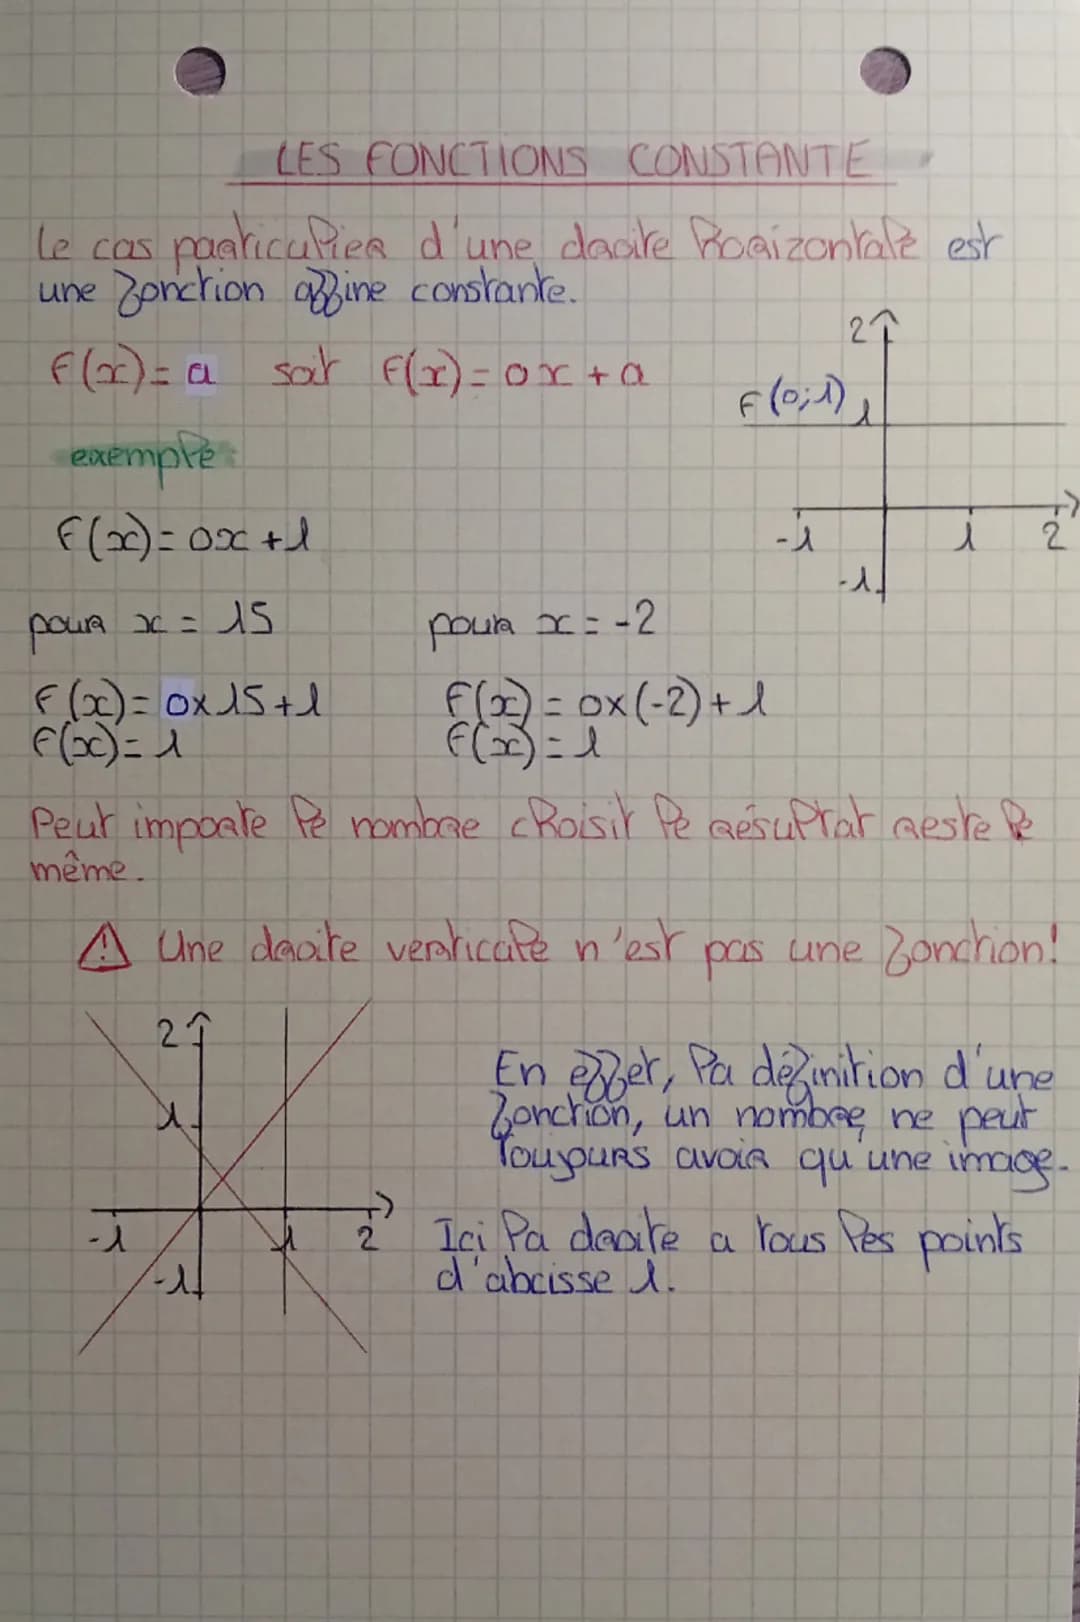 LES FONCTIONS CONSTANTE
Le cas particulier d'une droite horizontale est
une fonction affine constante.
2
F(x) = a soit F(x) = 0x + a
F(0;1) 1
exemple:
F(x) = 0x + 1
-1 1 2
-1
pour x = 15 pour x = -2
F(x) = 0x15+1 F(x) = 0x(-2)+1
F(x) = 1 F(x) = 1
Peut importe le nombre choisit le résultat reste le
même.
⚠ Une droite verticale n'est pas une fonction!
2
En effet, la définition d'une
1 fonction, un nombre ne peut
toujours avoir qu'une image.
-1 1 2 Ici la droite a tous les points
-1 d'abcisse 1.